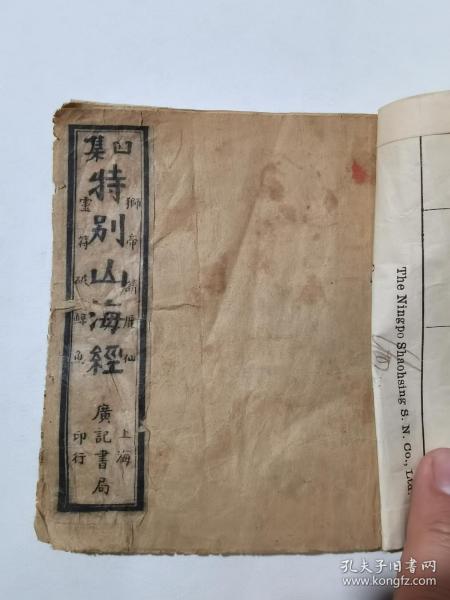 四集
特别山海經
靈符破
上海
廣記書局
印行
The Ningpo Shaohsing S. N. Co., Ltd.
孔夫子旧书网
www.kongfz.com